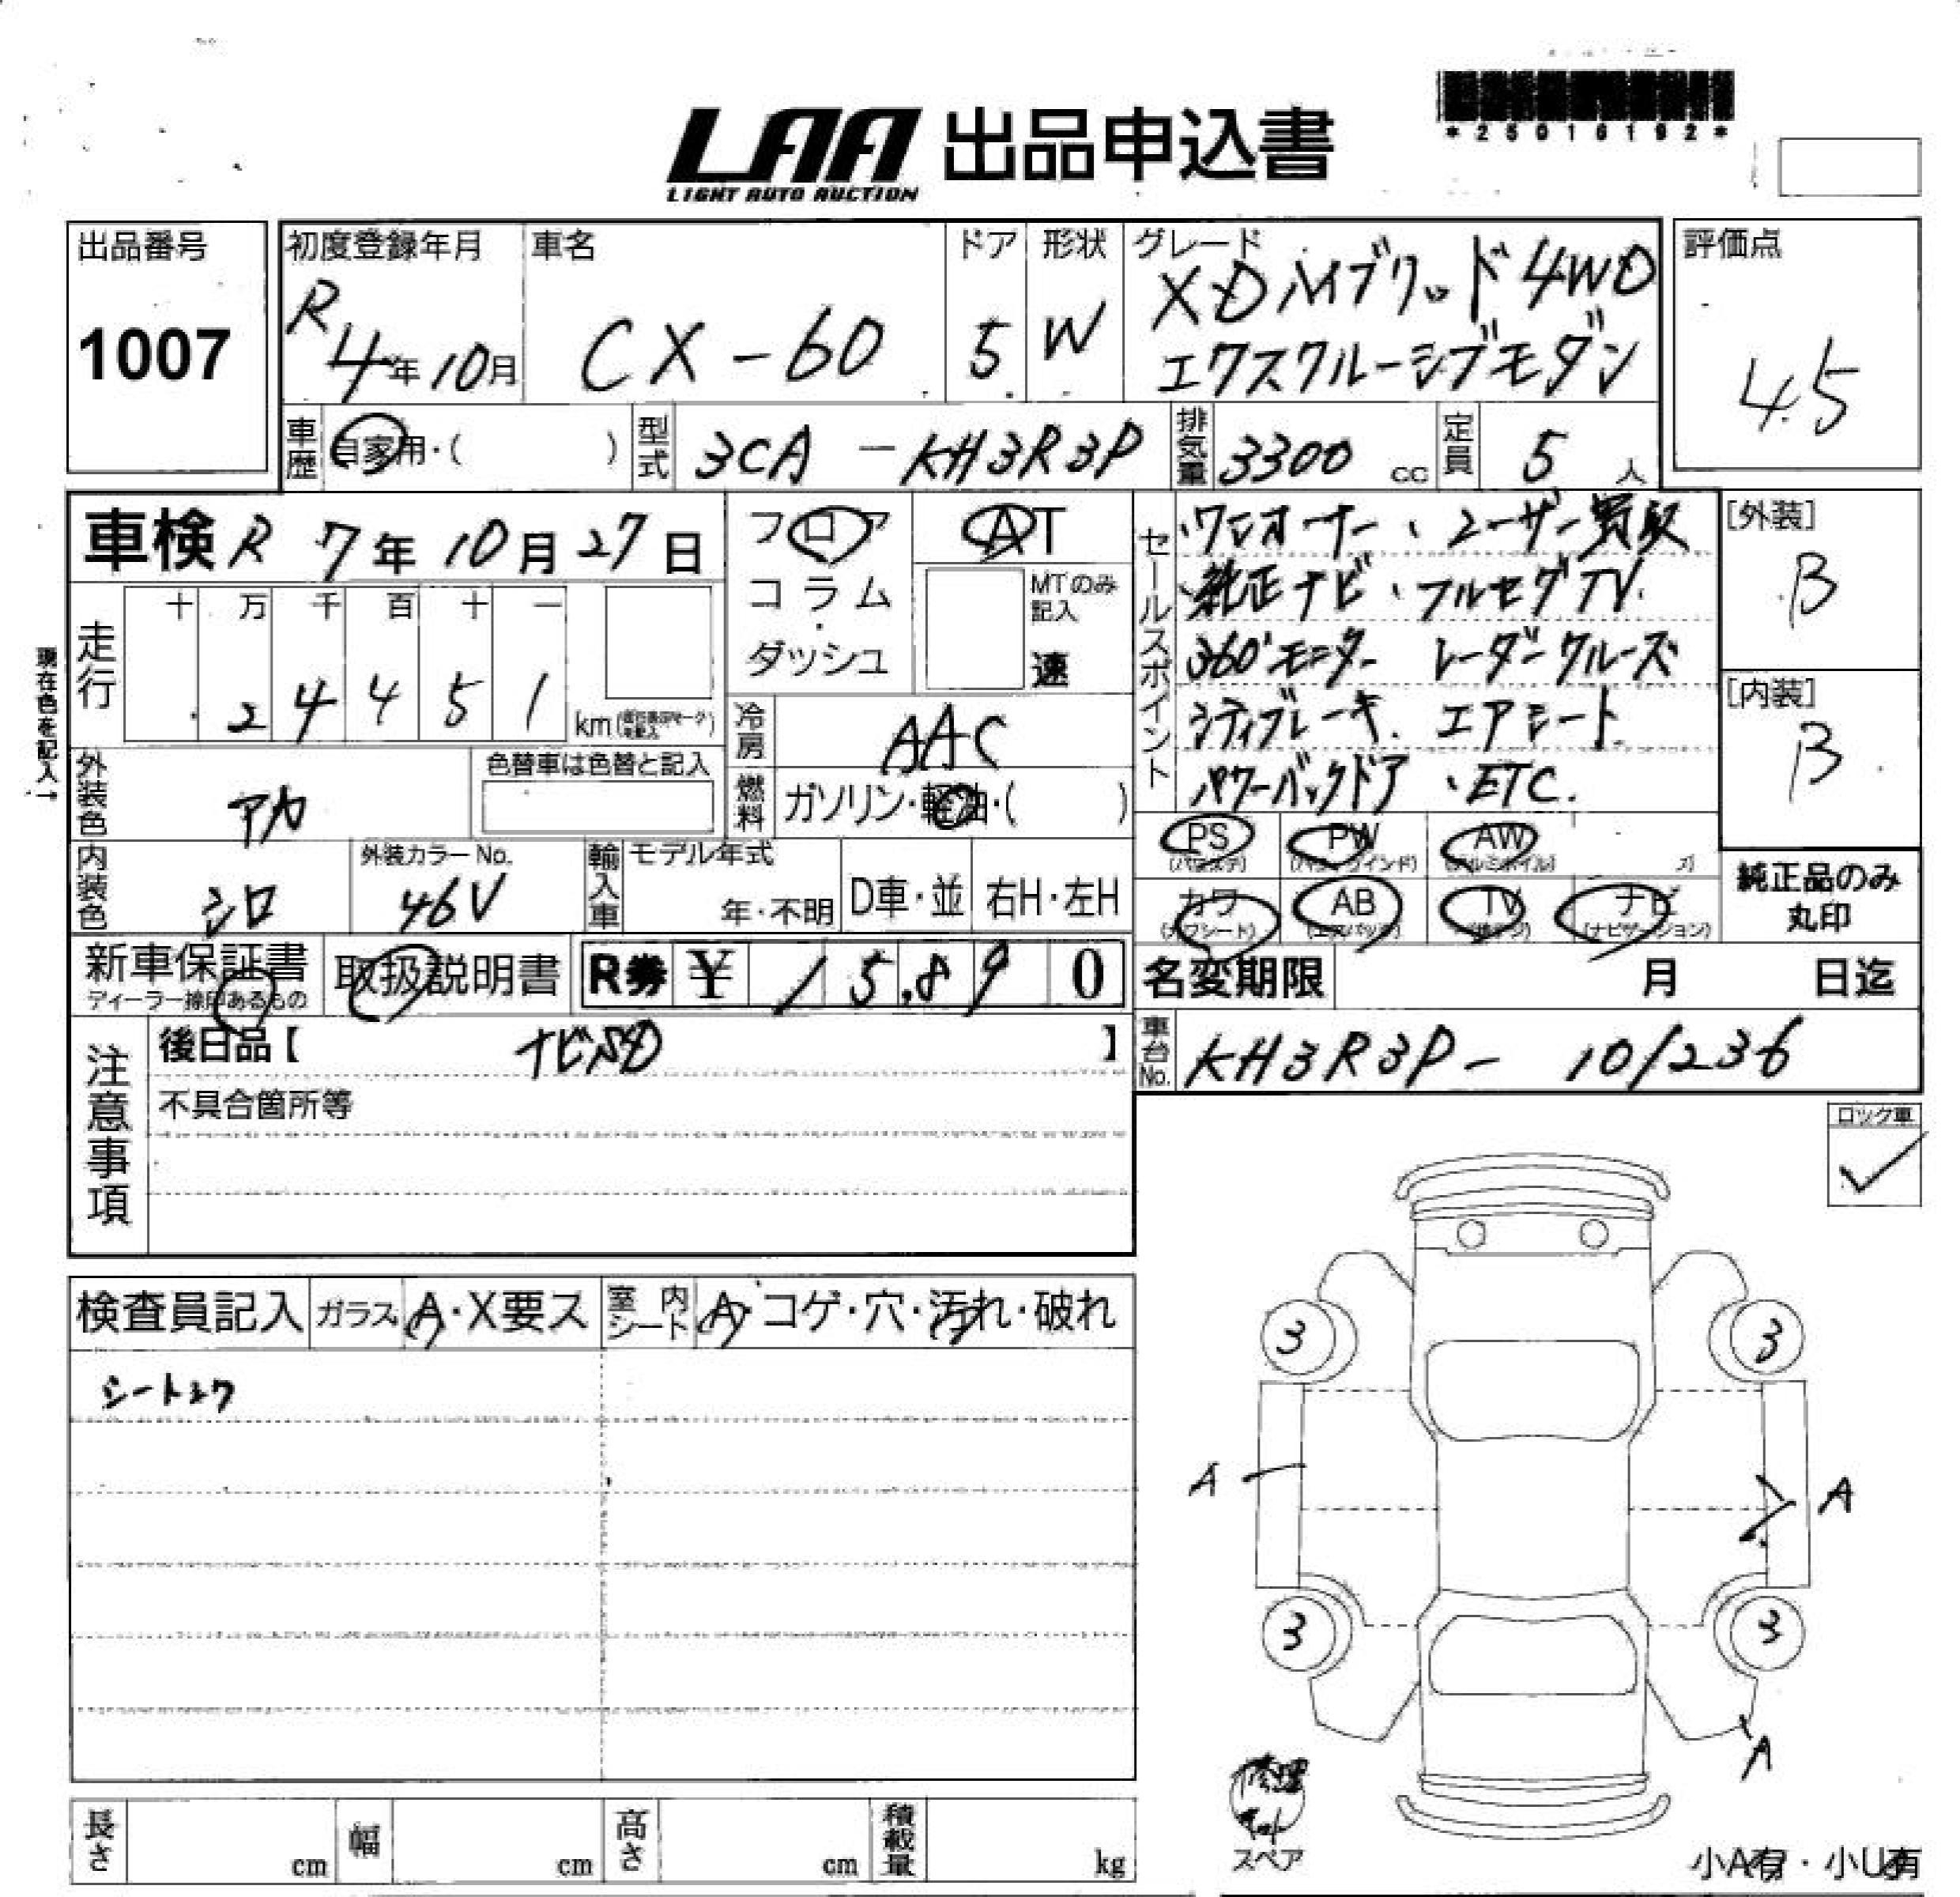 LAA 出品申込書
LIGHT AUTO AUCTION
*25016192*
出品番号
1007
初度登録年月
R4年10月
車名
CX-60
ドア
5
形状
W
グレード
XDハイブリッド4WD
エクスクルーシブモダン
評価点
4.5
車歴
自家用・( )
型式
3CA - KH3R3P
排気量
3300 cc
定員
5 人
車検 R 7年 10月 27日
走行
十 万 千 百 十 一
2 4 4 5 1 km
現在色を記入→
外装色
アカ
色替車は色替と記入
内装色
シロ
外装カラーNo.
46V
輸入車
モデル年式
年・不明
D車・並
右H・左H
フロア
コラム
ダッシュ
AT
MTのみ記入
速
冷房
AAC
燃料
ガソリン・軽油・( )
セールスポイント
・ワンオーナー、ユーザー買取
・純正ナビ・フルセグTV.
360°モニター レーダークルーズ
シティブレーキ. エアシート
パワーバックドア ・ETC.
[外装]
B
[内装]
B
PS
(パワステ)
PW
(パワーウインド)
AW
(アルミホイル)
カワ
(カワシート)
AB
(エアバッグ)
TV
(地デジ)
ナビ
(ナビゲーション)
純正品のみ
丸印
新車保証書
ディーラー捺印あるもの
取扱説明書
R券 ¥ 15,890
名変期限 月 日迄
車台No.
KH3R3P- 101236
注意事項
後日品【 ナビSD 】
不具合箇所等
ロック車
検査員記入
ガラス
A・X要ス
室内シート
A・コゲ・穴・汚れ・破れ
シートシワ
3
3
A
A
3
3
A
修理キット
スペア
小A有・小U有
長さ cm
幅 cm
高さ cm
積載量 kg